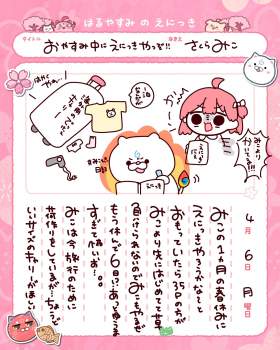 はるやすみ の えにっき
タイトル
おやすみ中にえにっきやっぞ!!
なまえ
さくら みこ
4月6日 月曜日
みこの1ヵ月の春休みに
えにっきやろうかなぁと
おもってしたら35Pの方が
みこより先にはじめてて草
負けられないのでみこもやるぞ
もう休んで6日!?あっとゆうま
すぎて怖いお…。
みこは今旅行のために
荷作りをしているがちょうど
いいサイズのキャリーがほしい
みこより
かいてる!!!
えにっき